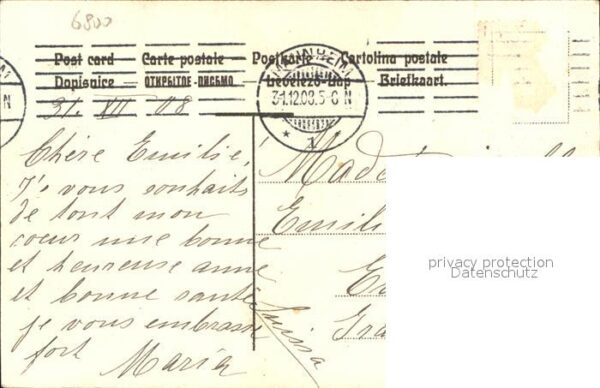 6800
Post card — Carte postale — Postkarte — Cartolina postale
Dopisnice — ОТКРЫТОЕ ПИСЬМО — Levelező-Lap — Briefkaart.
MANNHEIM
31.12.08.5-6 N
* 1
31. XII 08
Chère Emilie,
Je vous souhaits
de tout mon
coeur une bonne
et heureuse anne
et bonne santé
je vous embrasse
fort
Maria
Suissa
Emili
privacy protection
Datenschutz